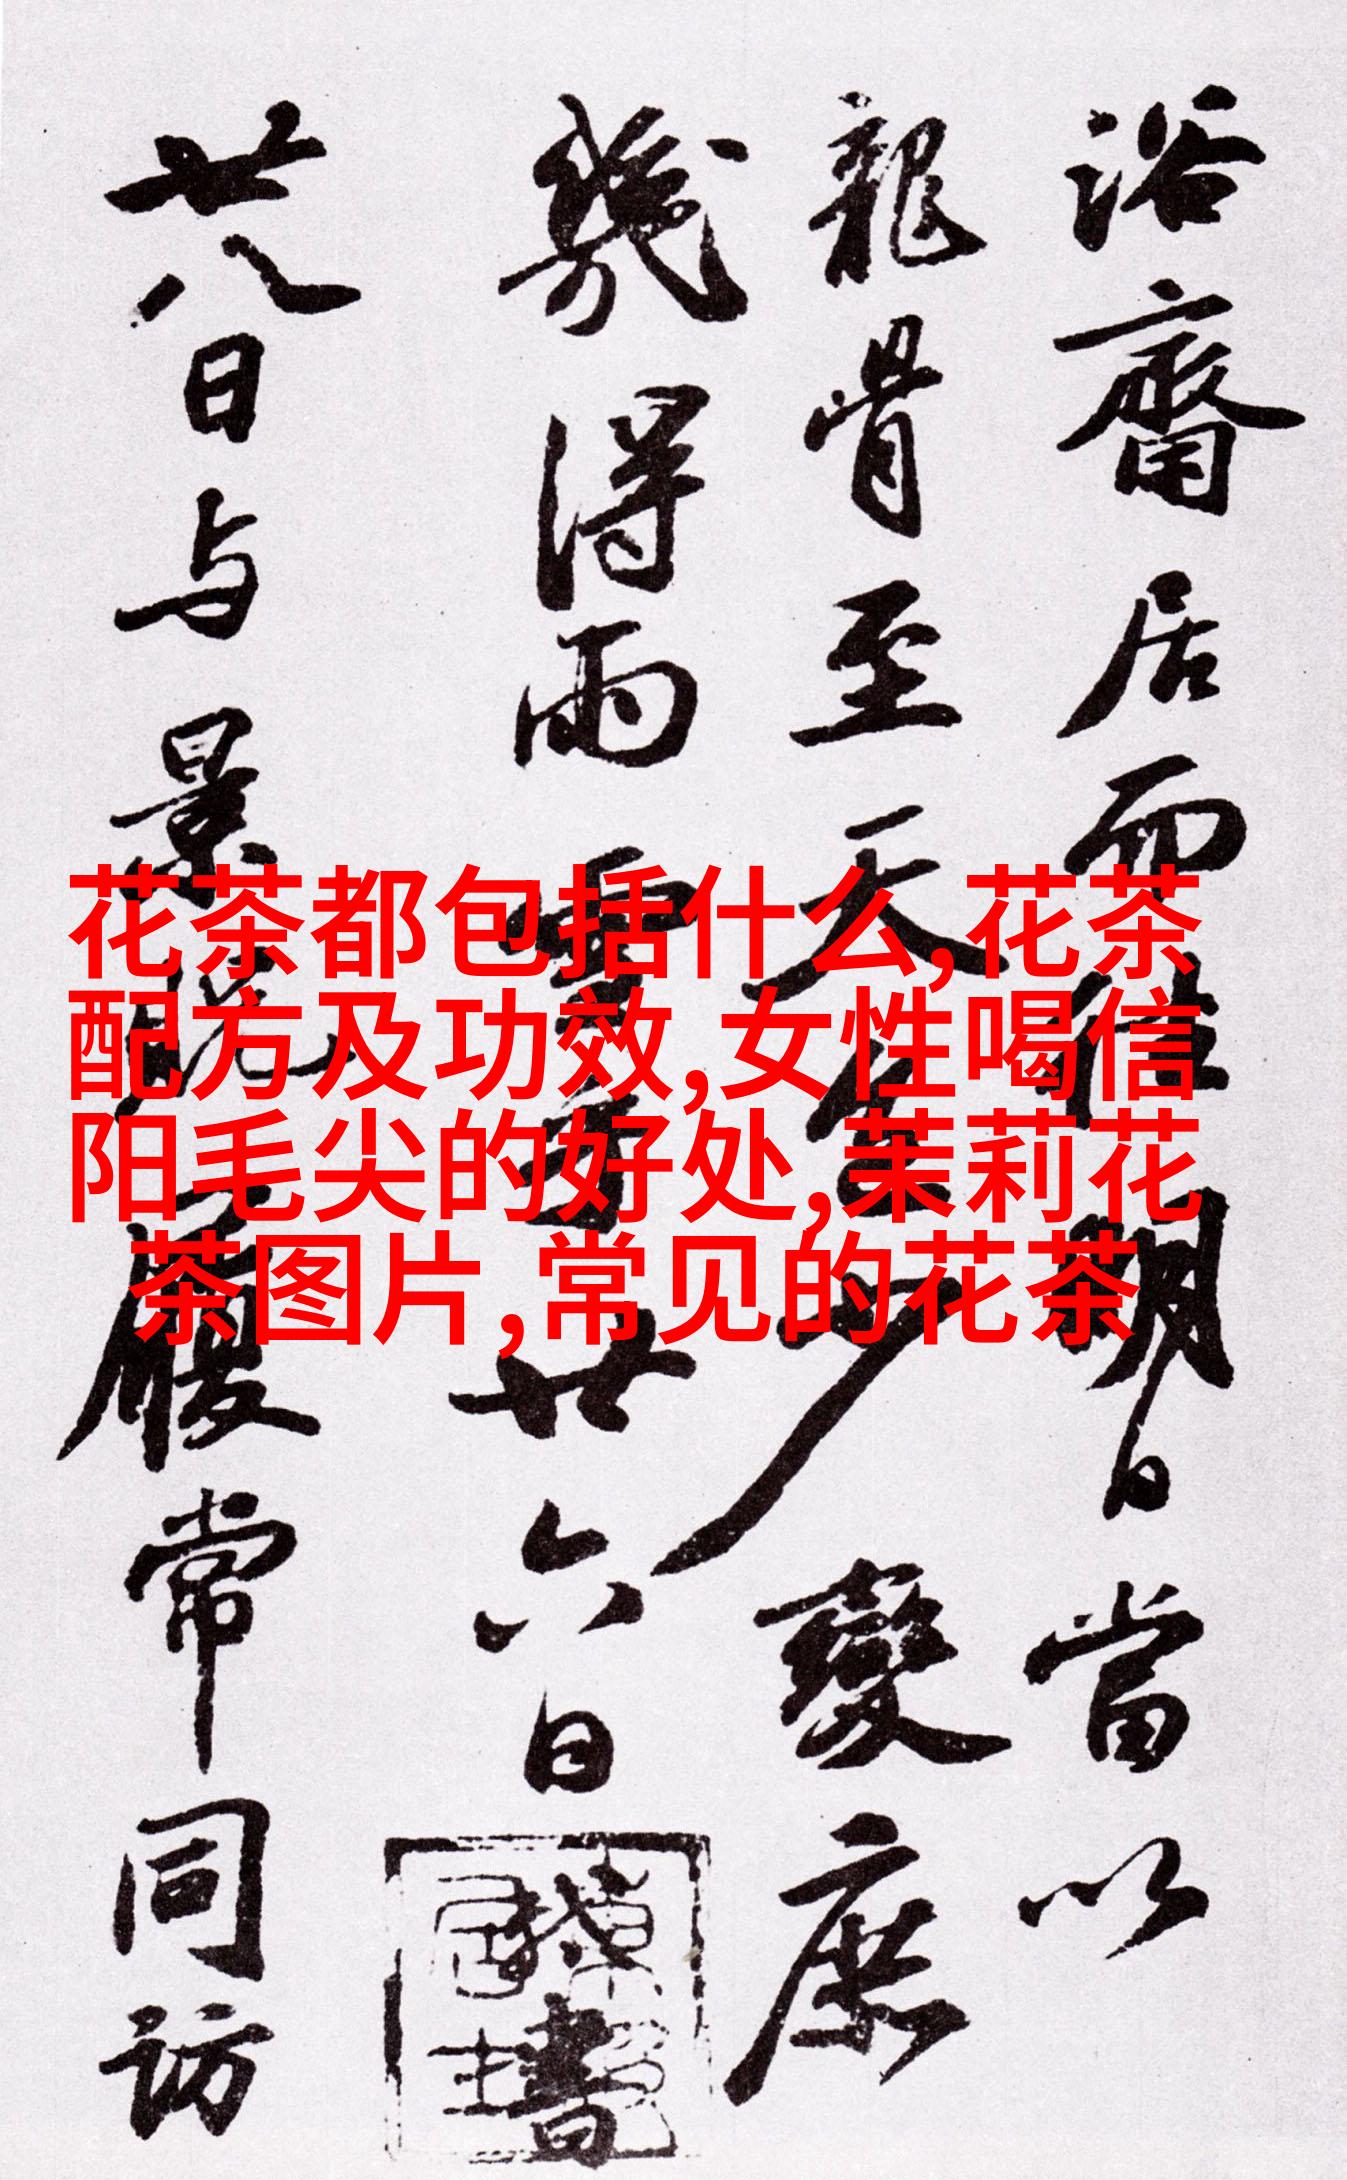 花茶都包括什么,花茶
配方及功效,女性喝信
阳毛尖的好处,茉莉花
茶图片,常见的花茶
浴齋居而往明日當以
龍骨至天色少變庶
幾得雨雪耳廿六日書
廿八日与景貺履常同訪